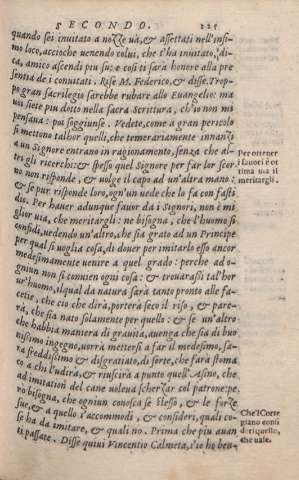 SECONDO. 225
quando sei inuitato a nozze uà, & assettati nell'infi-
mo loco, accioche uenendo colui, che t'ha inuitato, di-
ca, amico ascendi piu su: e cosi ti sarà honore alla pre
sentia de i conuitati. Rise M. Federico, & disse. Trop-
po gran sacrilegio sarebbe rubare allo Euangelio: ma
uoi siete piu dotto nella sacra Scrittura, ch'io non mi
pensaua: poi soggiunse. Vedete, come a gran pericolo
si mettono talhor quelli, che temerariamente innanzi
a un Signore entrano in ragionamento, senza che al-
tri gli ricerchi: & spesso quel Signore per far lor scor
no non risponde, & uolge il capo ad un'altra mano:
& se pur risponde loro, ogn'un uede che lo fa con fasti
dio. Per hauer adunque fauor da i Signori, non è mi
glior uia, che meritargli: ne bisogna, che l'huomo si
confidi, uedendo un'altro, che sia grato ad un Principe
per qual si uoglia cosa, di douer per imitarlo esso ancor
medesimamente uenire a quel grado: perche ad o-
gniun non si conuien ogni cosa: & trouarassi talhor
un'huomo, ilqual da natura sarà tanto pronto alle fa-
cetie, che ciò che dirà, porterà seco il riso, & pare-
rà, che sia nato solamente per quello: & se un'altro
che habbia maniera di grauità, auenga che sia di buo
nissimo ingegno, uorrà mettersi a far il medesimo, sa-
rà freddissimo & disgratiato, di sorte, che farà stoma
co a chi l'udirà, & riuscirà a punto quell'Asino, che
ad imitation del cane uoleua scherzar col patrone: pe
rò bisogna, che ogniun conosca se stesso, & le forze
sue, & a quello s'accommodi, & consideri, quali co-
se ha da imitare, & quali nò. Prima che piu auan
ti passate. Disse quiui Vincentio Calmeta, s'io ho ben
Per ottener
i fauori è ot
tima uia il
meritargli.
Che'l Corte
giano consi
deri quello,
che uale.